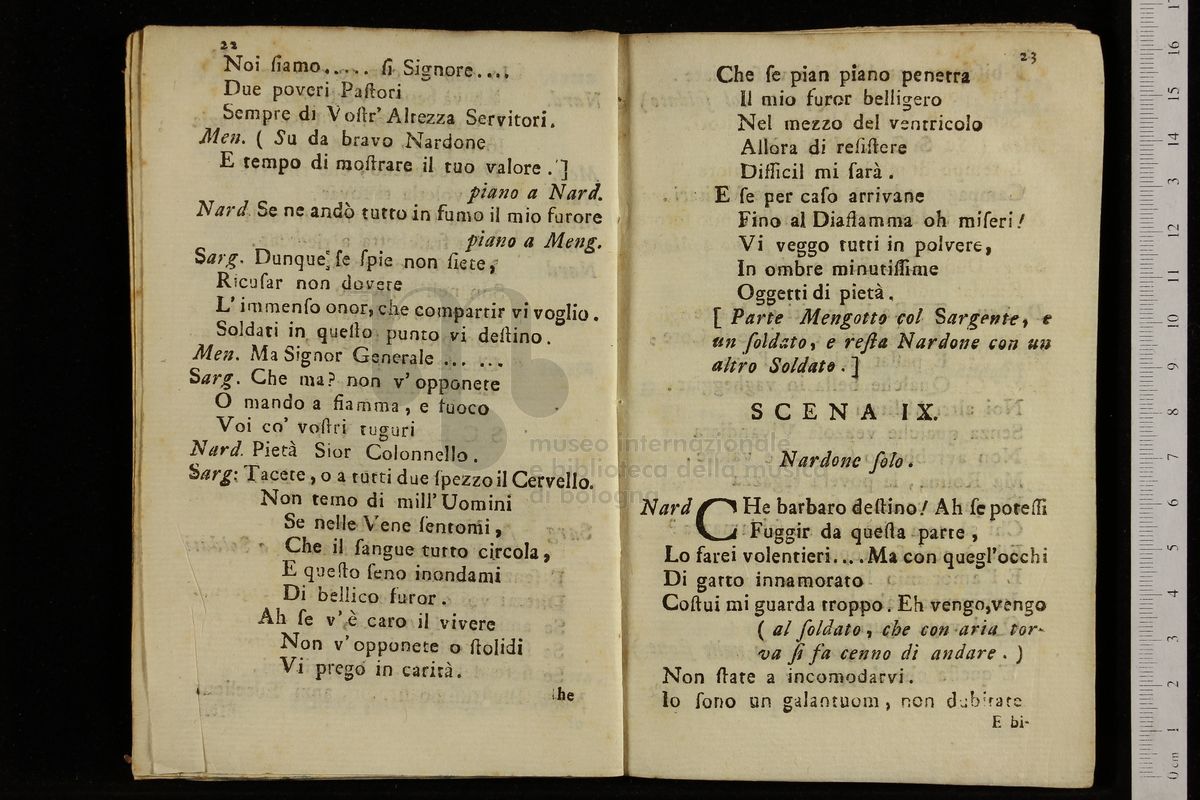 22
Noi ſiamo..... ſi Signore....
Due poveri Paſtori
Sempre di Voſtr' Altezza Servitori.
Men. ( Su da bravo Nardone
E tempo di moſtrare il tuo valore . ]
piano a Nard.
Nard. Se ne andò tutto in fumo il mio furore
piano a Meng.
Sarg. Dunque, ſe ſpie non ſiete,
Ricuſar non dovete
L' immenſo onor, che compartir vi voglio.
Soldati in queſto punto vi deſtino.
Men. Ma Signor Generale ... ...
Sarg. Che ma? non v' opponete
O mando a fiamma, e fuoco
Voi co' voſtri tuguri
Nard. Pietà Sior Colonnello.
Sarg: Tacete, o a tutti due ſpezzo il Cervello.
Non temo di mill' Uomini
Se nelle Vene ſentomi,
Che il ſangue tutto circola,
E queſto ſeno inondami
Di bellico furor.
Ah ſe v' è caro il vivere
Non v' opponete o ſtolidi
Vi prego in carità.
he
23
Che ſe pian piano penetra
Il mio furor belligero
Nel mezzo del ventricolo
Allora di reſiſtere
Difficil mi ſarà.
E ſe per caſo arrivane
Fino al Diaflamma oh miſeri!
Vi veggo tutti in polvere,
In ombre minutiſſime
Oggetti di pietà.
[ Parte Mengotto col Sargente, e
un ſoldato, e reſta Nardone con un
altro Soldato. ]
SCENA IX.
Nardone ſolo.
Nard CHe barbaro deſtino! Ah ſe poteſſi
Fuggir da queſta parte,
Lo farei volentieri.... Ma con quegl'occhi
Di gatto innamorato
Coſtui mi guarda troppo. Eh vengo, vengo
( al ſoldato, che con aria tor-
va ſi fa cenno di andare. )
Non ſtate a incomodarvi.
Io ſono un galantuom, non dubitate
E bi-
museo internazionale
e biblioteca della musica
di bologna
17
16
15
14
13
12
11
10
9
8
7
6
5
4
3
2
1
0 cm